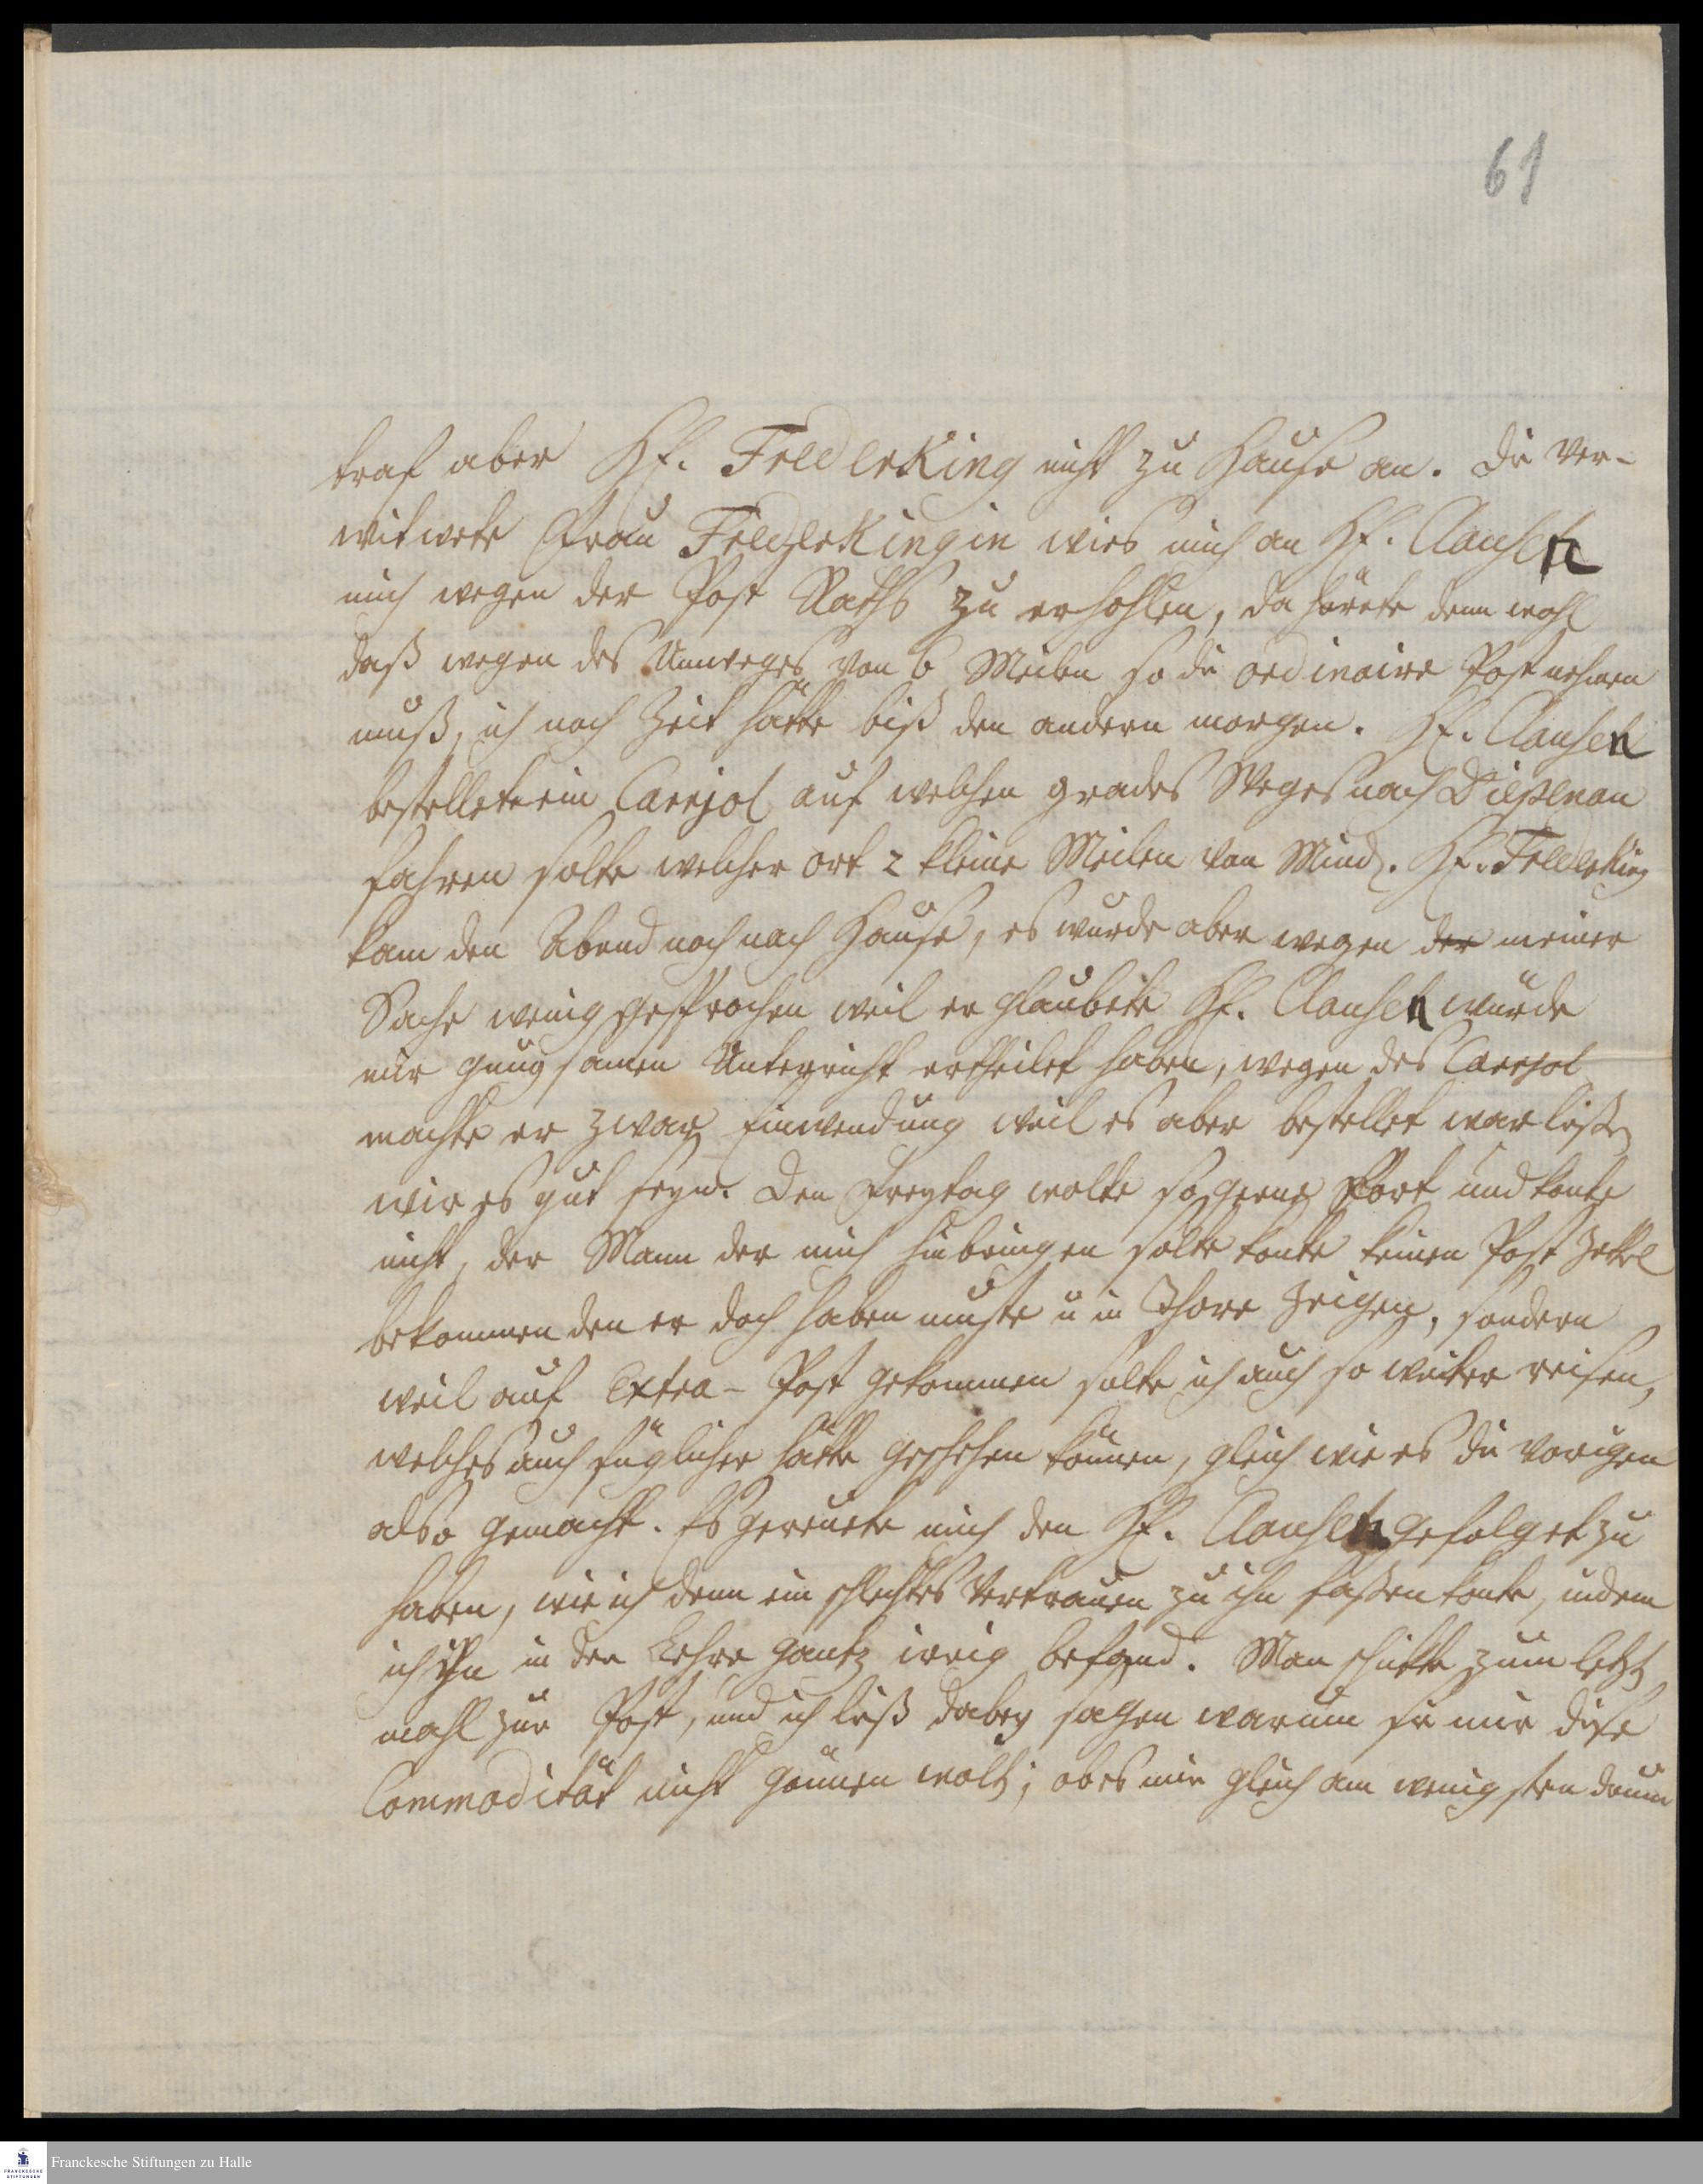 61
traf aber Hr. Fredeking nicht zu Hause an. Die ver-
witwete Frau Fredekingin wies mich an Hr. Clausen
mich wegen der Post Raths zu erhohlen, da hörete denn wohl
daß wegen des Umweges von 6 Meilen so die ordinaire Post nehmen
muß, ich noch Zeit hätte biß den andern morgen. Hr. Clausen
bestellete ein Carjol auf welchen grades Weges nach Dießenau
fahren solte welcher ort 2 kleine Meilen von Mind. Hr. Fredeking
kam den Abend noch nach Hause, es wurde aber wegen der meiner
Sache wenig gesprochen weil er glaubete Hr. Clausen würde
mir gnugsamen Unterricht ertheilet haben, wegen des Carjol
machte er zwar Einwendung weil es aber bestellet war ließ
wir es gut seyn. Den Freytag wolte so gerne fort und konte
nicht, der Mann der mich hinbringen solte konte keinen Post Zettel
bekommen den er doch haben muste u in Thore zeigen, sondern
weil auf Extra-Post gekommen solte ich auch so weiter reisen,
welches auch füglicher hätte geschehen können, gleich wie es die vorigen
also gemacht. Es gereuete mich den Hr. Clausen gefolget zu
haben, wie ich denn ein schlechtes Vertrauen zu ihn faßen konte, indem
ich ihn in der Lehre gantz irrig befand. Man schickte zum letzt
mahl zur Post, und ich ließ dabey sagen warum sie mir diese
Commodität nicht gönnen wolt; ob es mir gleich am wenigsten darum
Franckesche Stiftungen zu Halle
FRANCKESCHE
STIFTUNGEN